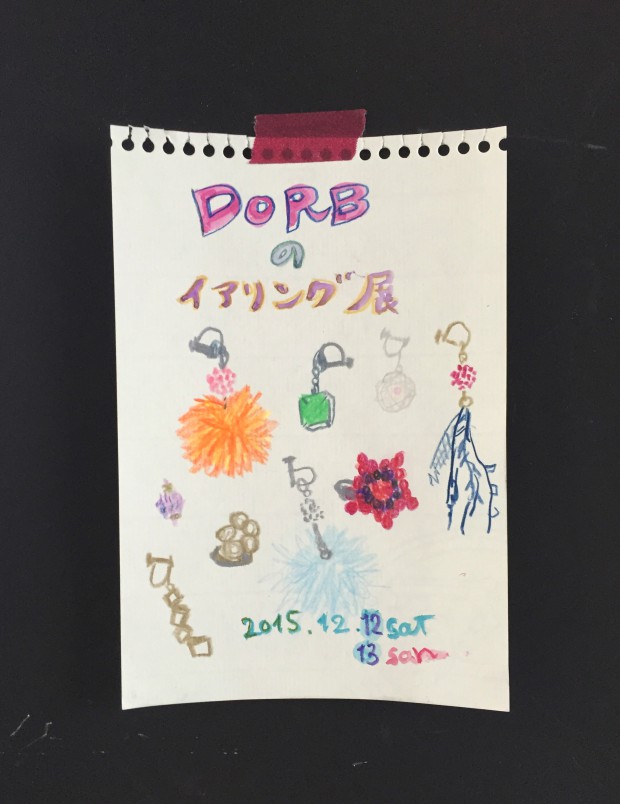 DORB
の
イアリング展
2015.12.12sat
13 san